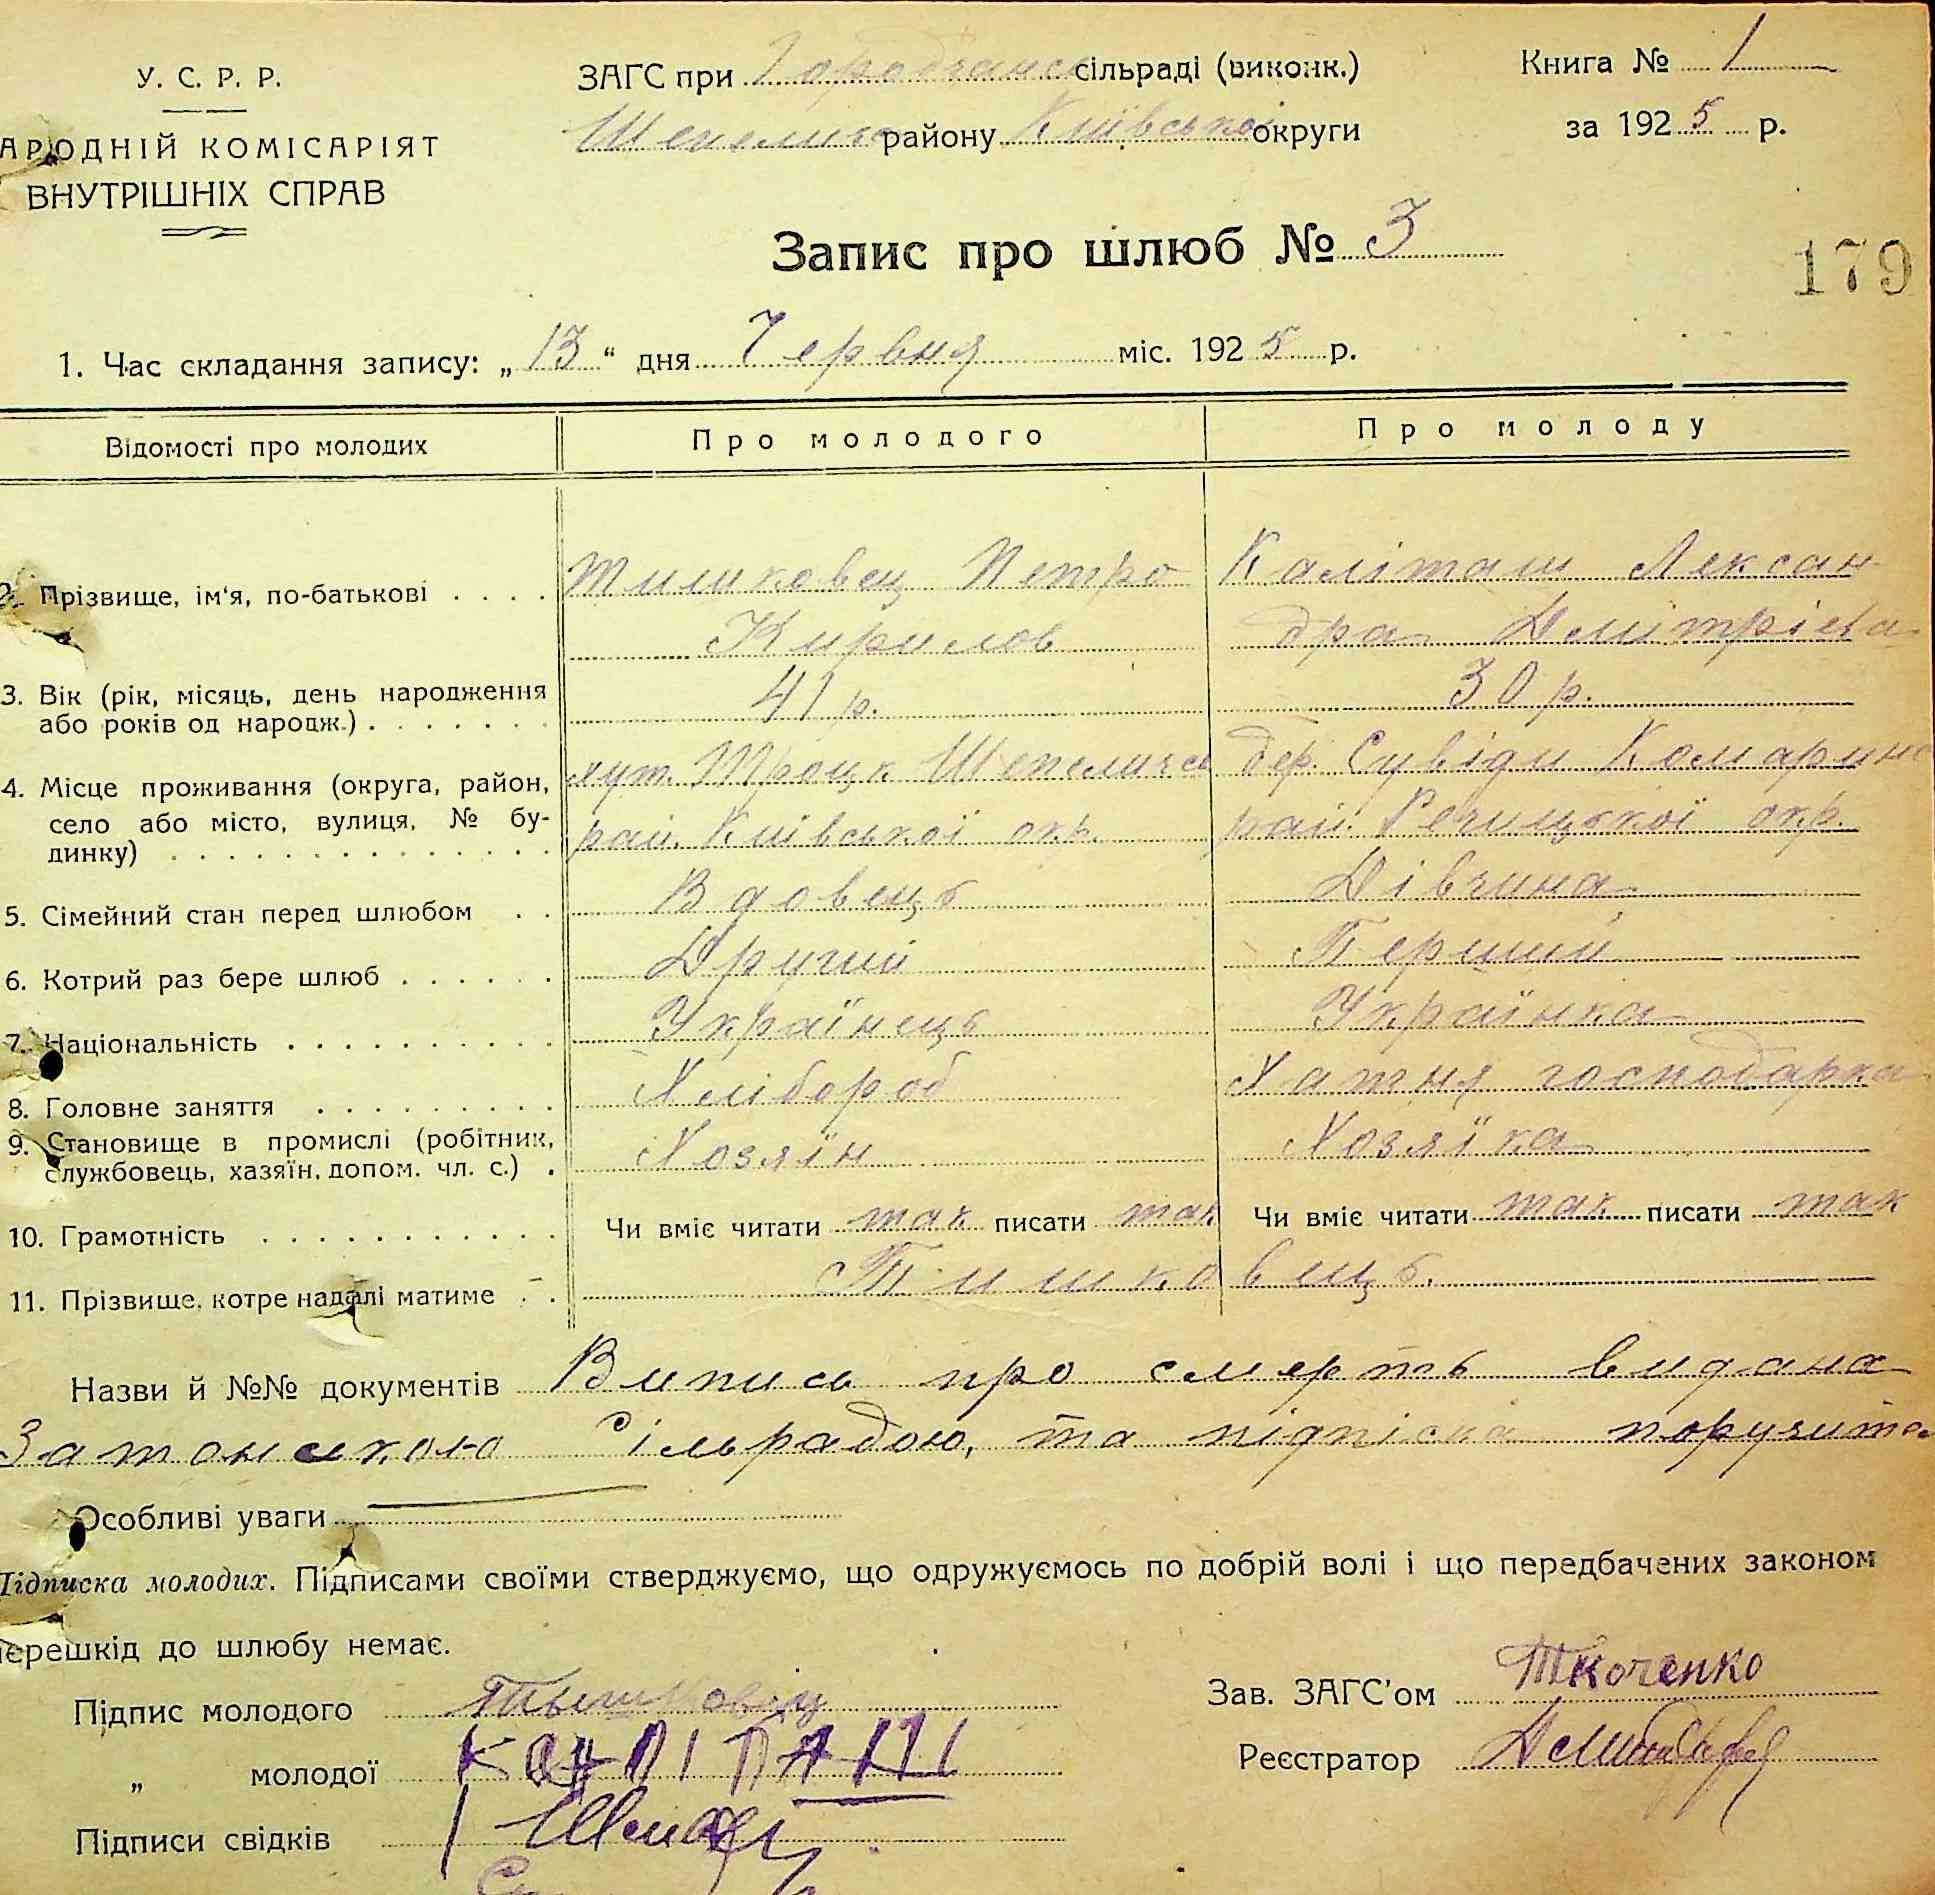 У. С. Р. Р.
АРОДНІЙ КОМІСАРІЯТ
ВНУТРІШНІХ СПРАВ
ЗАГС при Городчанск сільраді (виконк.)
Шепелича району Київської округи
Книга № 1
за 1925 р.
Запис про шлюб № 3
179
1. Час складання запису: „13“ дня Червня міс. 1925 р.
Відомості про молодих
Про молодого
Про молоду
2. Прізвище, ім'я, по-батькові
Тишковец Петро
Кирилов
Каліташ Лексан
дра Дмітріева
3. Вік (рік, місяць, день народження
або років од народж.)
41 р.
30 р.
4. Місце проживання (округа, район,
село або місто, вулиця, № бу-
динку)
хут. Троцк Шепеличск
рай. Київської окр.
дер. Сувіди Комарин
рай. Речицької окр.
5. Сімейний стан перед шлюбом
Вдовець
Дівчина
6. Котрий раз бере шлюб
Другий
Перший
7. Національність
Українець
Українка
8. Головне заняття
Хлібороб
Хатня господарка
9. Становище в промислі (робітник,
службовець, хазяїн, допом. чл. с.)
Хозяїн
Хозяїка
10. Грамотність
Чи вміє читати так писати так
Чи вміє читати так писати так
11. Прізвище, котре надалі матиме
Тишковець.
Назви й №№ документів Випись про смерть видана
Затонською Сільрадою, та підпіска поручите
Особливі уваги
Підписка молодих. Підписами своїми стверджуємо, що одружуємось по добрій волі і що передбачених законом
перешкід до шлюбу немає.
Підпис молодого Тышковец
„ молодої КАЛІТАШ
Підписи свідків
Зав. ЗАГС'ом Ткоченко
Реєстратор